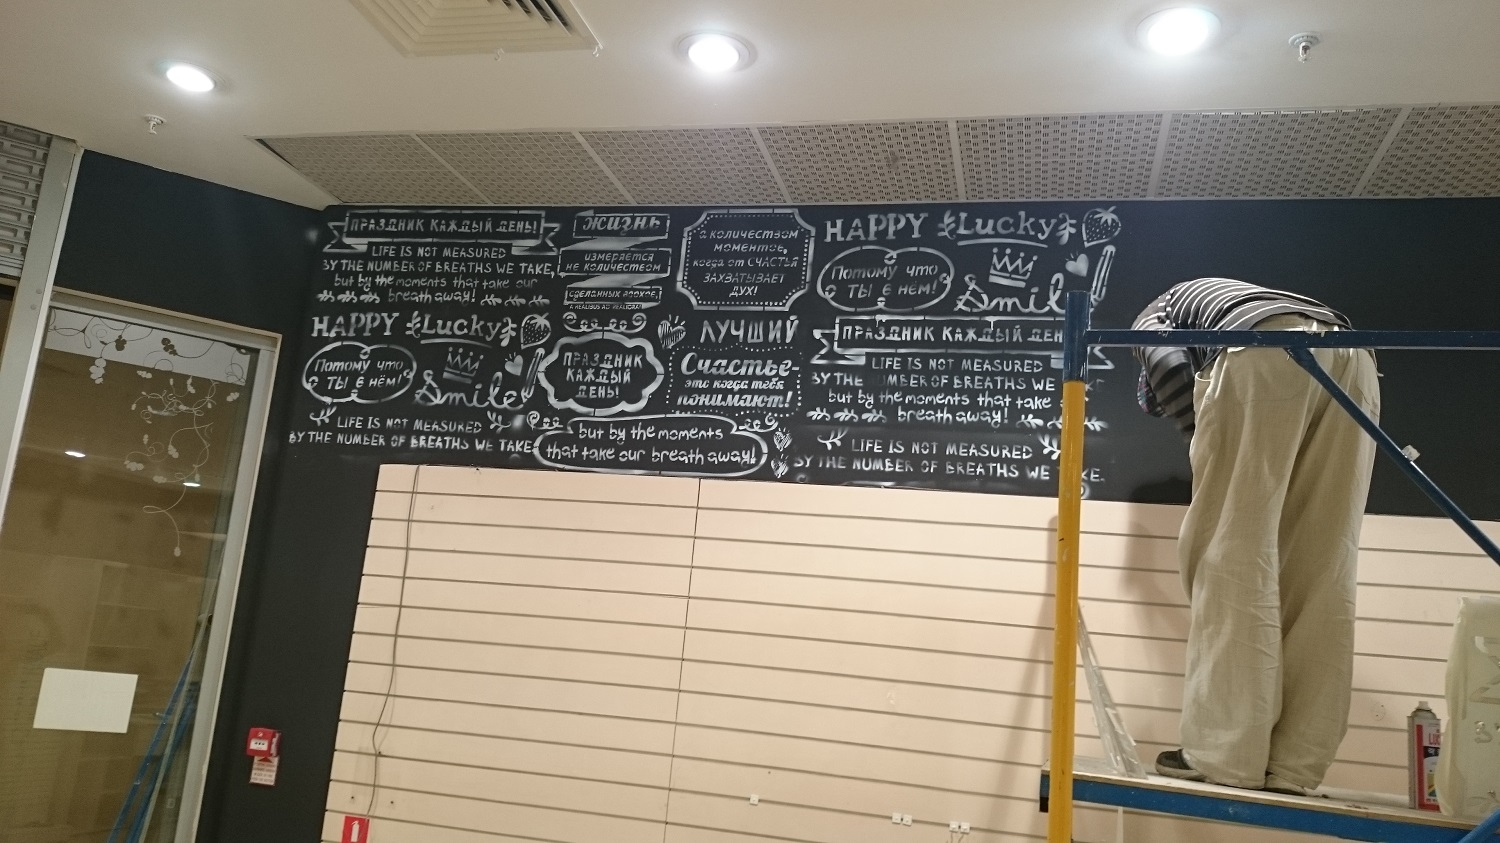 ПРАЗДНИК КАЖДЫЙ ДЕНЬ!
LIFE IS NOT MEASURED
BY THE NUMBER OF BREATHS WE TAKE,
but by the moments that take our
breath away!
жизнь
измеряется
не количеством
сделанных вдохов,
а количеством
моментов,
когда от СЧАСТЬЯ
ЗАХВАТЫВАЕТ
ДУХ!
HAPPY Lucky
Потому что
ТЫ в нём!
Smil
HAPPY Lucky
Потому что
ТЫ в нём!
Smile
ПРАЗДНИК
КАЖДЫЙ
ДЕНЬ!
ЛУЧШИЙ
Счастье-
это когда тебя
понимают!
ПРАЗДНИК КАЖДЫЙ ДЕН
LIFE IS NOT MEASURED
BY THE UMBER OF BREATHS WE
but by the moments that take
breath away!
LIFE IS NOT MEASURED
BY THE NUMBER OF BREATHS WE TAKE
but by the moments
that take our breath away!
LIFE IS NOT MEASURED
BY THE NUMBER OF BREATHS WE KE.